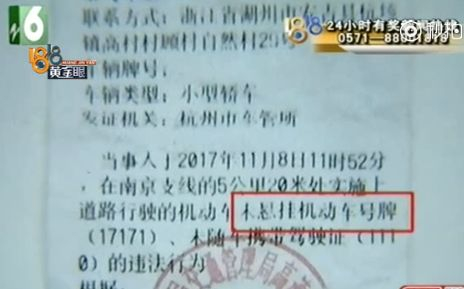 6
24小时有奖
秒拍
0571-88
1818
黄金眼
联系方式：浙江省湖州市
镇高村村顾村自然村29
车辆牌号：
车辆类型：小型轿车
发证机关：杭州市车管所
当事人于2017年11月8日11时52分
，在南京支线的5公里20米处实施上
道路行驶的机动车未悬挂机动车号牌
（17171）、未随车携带驾驶证（111
0）的违法行为
根据